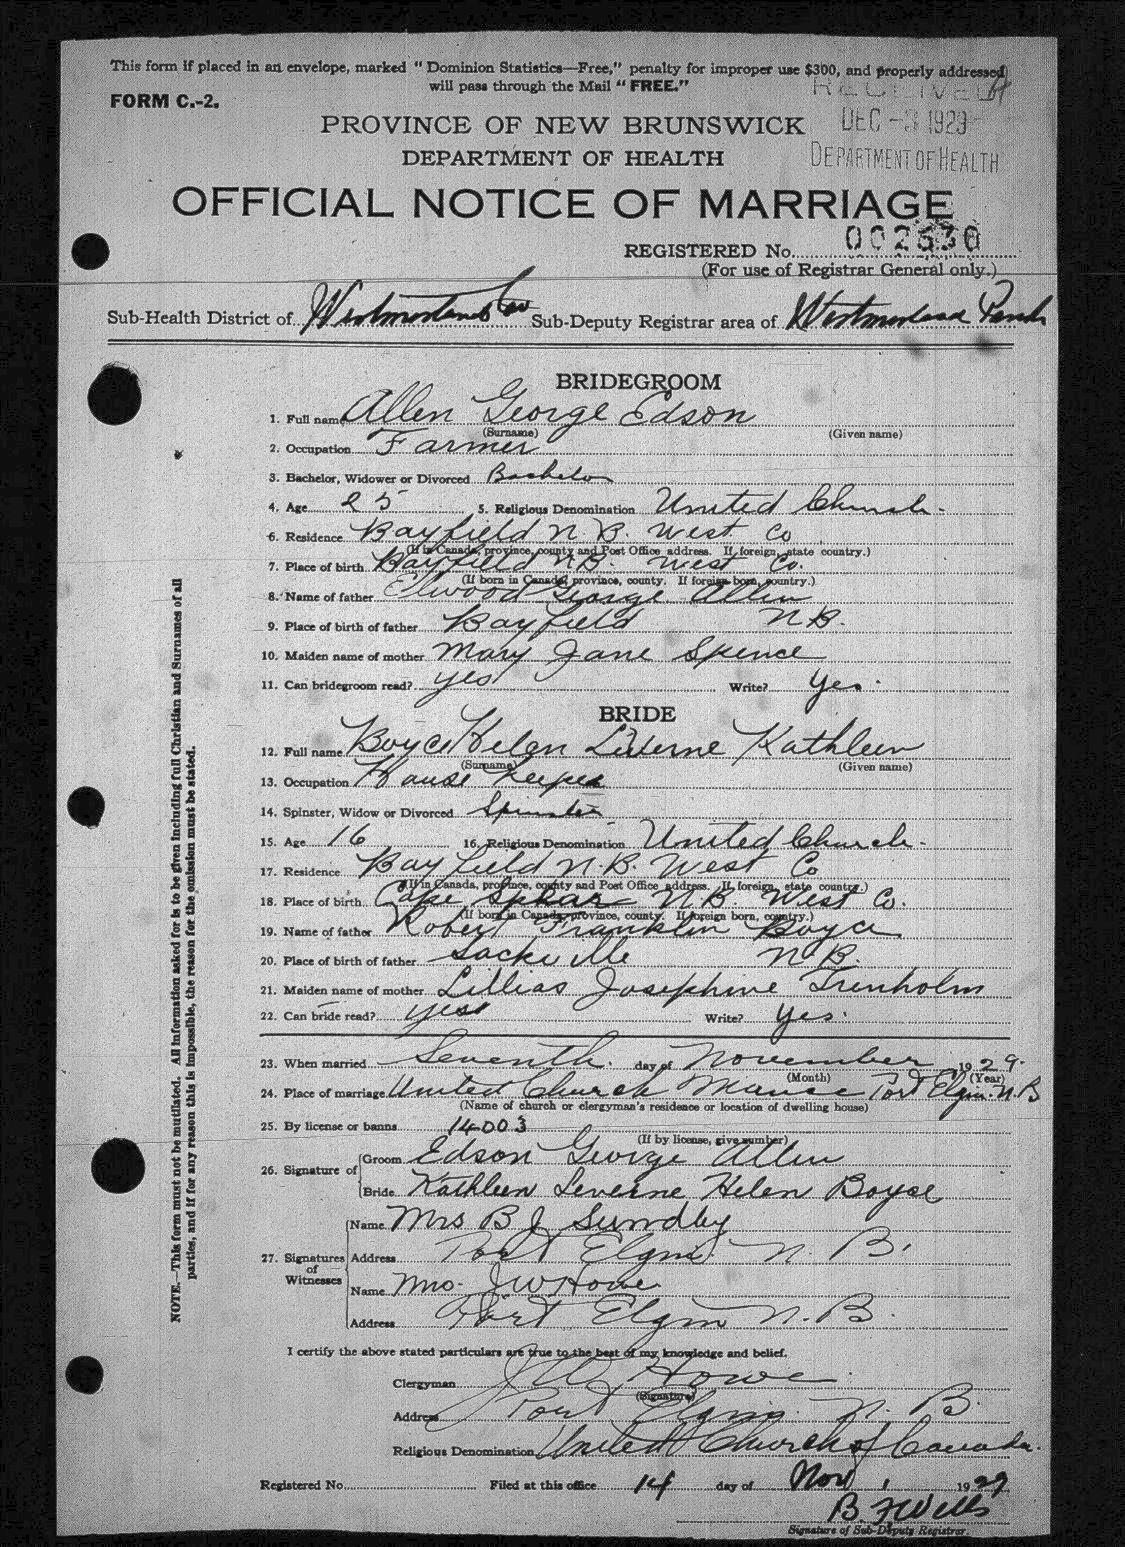 This form if placed in an envelope, marked "Dominion Statistics—Free," penalty for improper use $300, and properly addressed
will pass through the Mail "FREE."
FORM C.-2.
RECEIVED
PROVINCE OF NEW BRUNSWICK
DEC -3 1929
DEPARTMENT OF HEALTH
DEPARTMENT OF HEALTH
OFFICIAL NOTICE OF MARRIAGE
REGISTERED No. 002536
(For use of Registrar General only.)
Sub-Health District of Westmorland Co Sub-Deputy Registrar area of Westmorland Parish
BRIDEGROOM
1. Full name Allen George Edson
(Surname) (Given name)
2. Occupation Farmer
3. Bachelor, Widower or Divorced Bachelor
4. Age 25 5. Religious Denomination United Church.
6. Residence Bayfield N B. West Co
(If in Canada, province, county and Post Office address. If foreign, state country.)
7. Place of birth Bayfield N B. West Co.
(If born in Canada, province, county. If foreign born, country.)
8. Name of father Elwood George Allen
9. Place of birth of father Bayfield N B.
10. Maiden name of mother Mary Jane Spence
11. Can bridegroom read? yes Write? Yes.
BRIDE
12. Full name Boyce Helen Liverne Kathleen
(Surname) (Given name)
13. Occupation House Keeper
14. Spinster, Widow or Divorced Spinster
15. Age 16 16. Religious Denomination United Church.
17. Residence Bayfield N B. West Co
(If in Canada, province, county and Post Office address. If foreign, state country.)
18. Place of birth Cape Spear N B. West Co.
(If born in Canada, province, county. If foreign born, country.)
19. Name of father Robert Franklin Boyce
20. Place of birth of father Sackville N B.
21. Maiden name of mother Lillias Josephine Trenholm
22. Can bride read? yes Write? Yes.
23. When married Seventh. day of November 1929.
(Month) (Year)
24. Place of marriage United Church Manse Port Elgin. N. B
(Name of church or clergyman's residence or location of dwelling house)
25. By license or banns 14003
(If by license, give number)
26. Signature of Groom Edson George Allen
Bride Kathleen Leverne Helen Boyce
27. Signatures of Witnesses
Name Mrs B J Sundby
Address Port Elgin N. B.
Name Mrs. J W Howe
Address Port Elgin N. B.
I certify the above stated particulars are true to the best of my knowledge and belief.
Clergyman J W Howe.
(Signature)
Address Port Elgin. N. B.
Religious Denomination United Church of Canada.
Registered No. Filed at this office 14 day of Nov 1929
B. F Wells
Signature of Sub-Deputy Registrar.
NOTE.—This form must not be mutilated. All information asked for is to be given including full Christian and Surnames of all
parties, and if for any reason this is impossible, the reason for the omission must be stated.